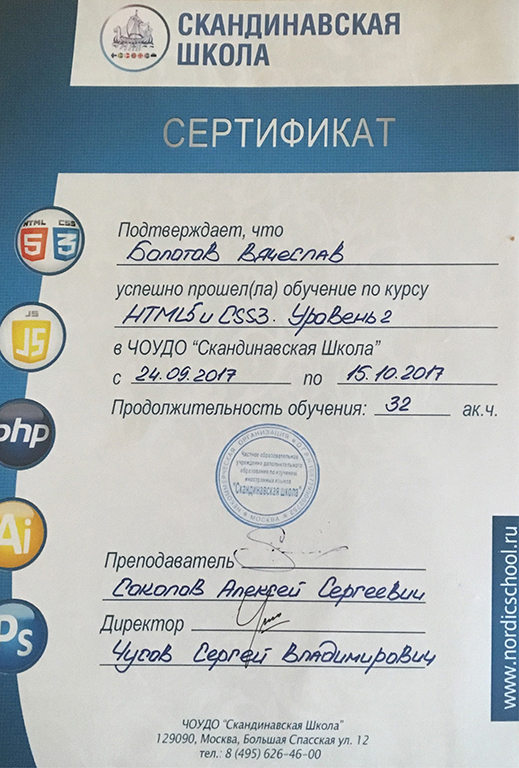 СКАНДИНАВСКАЯ
ШКОЛА
СЕРТИФИКАТ
HTML CSS
5 3
JS
JS
php
Ai
Ps
Подтверждает, что
Болотов Вячеслав
успешно прошел(ла) обучение по курсу
HTML5 и CSS3. Уровень 2
в ЧОУДО "Скандинавская Школа"
с 24.09.2017 по 15.10.2017
Продолжительность обучения: 32 ак.ч.
НЕКОММЕРЧЕСКАЯ ОРГАНИЗАЦИЯ
Частное образовательное
учреждение дополнительного
образования по изучению
иностранных языков
"Скандинавская школа"
МОСКВА
Преподаватель
Соколов Алексей Сергеевич
Директор
Чусов Сергей Владимирович
www.nordicschool.ru
ЧОУДО "Скандинавская Школа"
129090, Москва, Большая Спасская ул. 12
тел.: 8 (495) 626-46-00